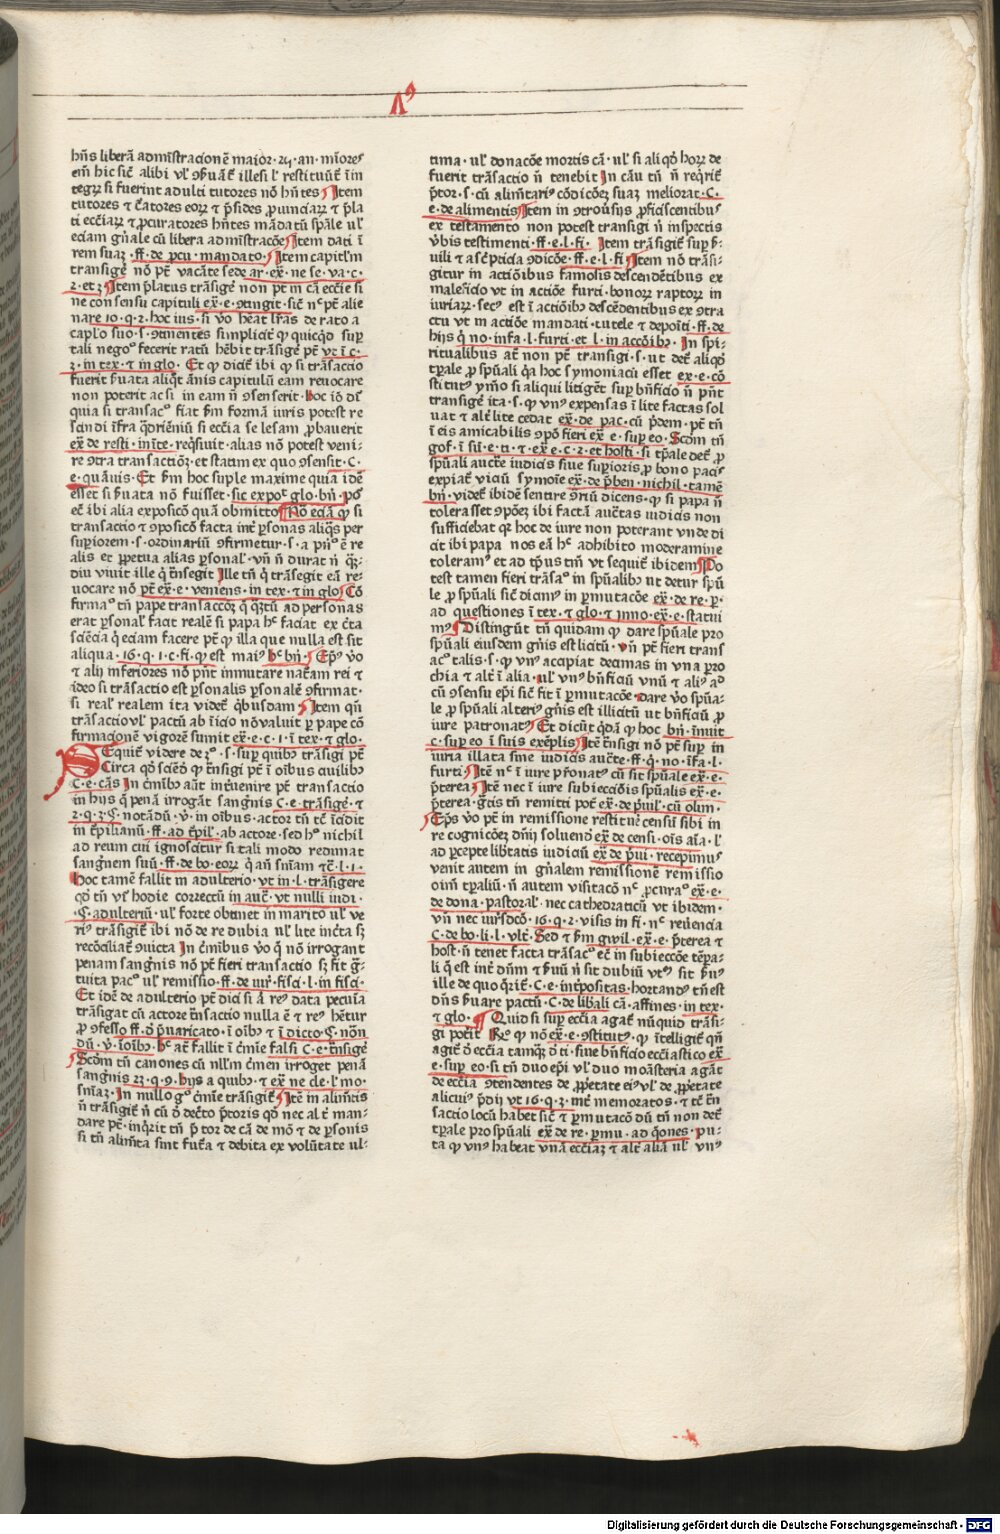 Aꝰ
hñs liberã admĩstracionẽ maior· 2ʒ· an· mĩores
em̃ hic sic̃ alibi vl̕ ꝯẽuãt̃ illesi l̕ restituũt̃ ĩ in
tegrꝝ si fuerint adulti tutores nõ hñtes Item
tutores ⁊ c̃atores eorꝝ ⁊ p̃sides ꝓuinciarꝝ ⁊ p̃la
ti ecc̃iarꝝ ⁊ ꝓcuratores hñtes mãdatũ sp̃ale ul̕
eciam gñale cũ libera admĩstracõe Item dati ĩ
rem suaꝫ · ff· de ꝓcu· mandato· Item capitl̃m
transigẽ nõ pt̃ vacãte sede ar· ex· ne se· va· c·
2· et 3 Item p̃latus trãsigẽ non pt̃ in cã ecc̃ie si
ne consensu capituli ex̃· e· ꝯtingit· sic̃ nᶜ pt̃ alie
nare 10· q· 2· hoc ius· si vo̊ h̃eat l̃ras de rato a
caplo̊ suo· s· ꝯtinentes simplicit̃ ꝙ quicqd̕ sup̃
tali nego° fecerit ratũ hẽbit trãsigẽ pt̃ vt ĩ c·
3· in tex· ⁊ in glo· Et ꝙ dicit̃ ibi ꝙ si trãsactio
fuerit f̃uata aliqt̃ ãnis capitulũ eam reuocare
non poterit ac si in eam ñ ꝯsenserit· hoc iõ dr̃
quia si transac° fiat f̃m formã iuris potest re
scindi ĩfra q̃driẽniũ si ecc̃ia se lesam ꝓbauerit
ex̃· de resti· in ĩte· reqs̃iuit· alias nõ potest veni-
re ꝯtra transactiõꝫ· et statim ex quo ꝯsensit· C·
e· quãuis· Et f̃m hoc suple maxime quia idẽ
esset si f̃uata nõ fuisset· sic expoᵗ glo· bñ· pͦs
ec̃ ibi alia exposicõ quã obmitto No̊ ecĩa ꝙ si
transactio ⁊ ꝯposicõ facta int̃ ꝑsonas aliqs̃ per
supiorem · s· ordinariũ ꝯfirmetur· s· a pñ° ẽ re
alis et ꝑpetua alias ꝑsonal̕· vñ ñ durat n̕ q̃ꝫ-
diu viuit ille q̕ t̃nsegit Ille tñ q̕ trãsegit eã re-
uocare nõ pt̃ ex̃· e· veniens· in tex· ⁊ in glo Cõ
firma° tñ pape transaccõꝫ q̕ qꝫtũ ad personas
erat ꝑsonal̕ facit realẽ si papa hᶜ faciat ex c̃ta
sciẽcia q̕ eciam facere pt̃ ꝙ illa que nulla est sit
aliqua· 16· q· 1· c· fi· ꝙ est maiꝰ hᶜ bñ· Ep̃s ṽo
⁊ alij inferiores nõ p̃nt immutare nat̃am rei ⁊
ideo si trãsactio est ꝑsonalis ꝑsonalẽ ꝯfirmat·
si real̕ realem ita videt̃ q̕busdam Item qñ
trãsactio vl̕ pactũ ab ĩicio nõ valuit ꝑ pape cõ
firmacionẽ vigorẽ sumit ex̃· e· c· 1· ĩ tex· ⁊ glo·
Sequit̃ videre de 2° · s· sup̃ quibꝫ trãsigi pt̃
Circa qd̕ sciẽd̕ ꝙ t̃nsigi pt̃ ĩ oĩbus ciuilibꝫ
C· e· cãs In c̃mĩbꝫ aũt inuenire pt̃ transactio
in hijs q̕ penã irrogãt sang̃nis C· e· trãsigẽ· ⁊
2· q· 3· C· notãdũ· v̕· in oĩbus· actor tñ tc̃ ĩcidit
in t̃pilianũ· ff· ad t̃pil̕· ab actore· sed hº nichil
ad reum cui ignoscitur si tali modo redimat
sang̃nem suũ· ff· de bo· eorꝝ q̕ añ sñiam ⁊c̃· l· 1·
Hoc tamẽ fallit in adulterio· vt in· l· trãsigere
qd̕ tñ vr̃ hodie correctũ in auc̃· vt nulli iudi·
C· adulteriũ· ul̕ forte obtinet in marito ul̕ ve
rꝰ trãsigit̃ ibi nõ de re dubia ul̕ lite inc̃ta sꝫ
recõciliat̃ ꝯuicta In c̃mĩbus ṽo q̕ nõ irrogant
penam sang̃nis nõ pt̃ fieri transactio sꝫ fit g̃-
tuita pac° ul̕ remissio· ff· de iur̃· fisci· l· in fisci·
Et idẽ de adulterio pt̃ dici si ã reꝰ data pecũia
trãsigat cũ actore t̃nsactio nulla ẽ ⁊ reꝰ hẽtur
ꝓ ꝯfesso ff· d̕ p̃uaricato· ĩ oĩbꝫ ⁊ ĩ dicto C· nõn
dũ· v̕· ĩ oĩbꝫ· hᶜ at̃ fallit ĩ c̃mĩe falsi C· e· t̃nsigẽ
Scd̕m tñ canones cũ nll̃m c̃men irroget penã
sang̃nis 23· q· 9· hijs a quibꝫ· ⁊ ex̃ ne cle· l· mo·
sñiaꝫ· In nullo g° c̃mĩe trãsigit̃ Itẽ in alim̃tis
ñ trãsigit̃ ñ cũ d̕ dec̃to p̃toris qd̕ nec al̕t̃ man-
dare pt̃· inq̕rit tñ p̃tor de cã de mõ ⁊ de ꝑsonis
si tñ alim̃ta sint fut̃a ⁊ debita ex volũtate ul-
tima· ul̕ donacõe mortis cã· ul̕ si aliqd̕ horꝝ de
fuerit trãsactio ñ tenebit In cãu tñ ñ req̕rit̃
p̃tor· s· cũ alim̃tariꝰ cõdicõeꝫ suaꝫ meliorat· C·
e· de alimentis Item in ꝯtrou̕sijs ꝓficiscentibꝰ
ex testamento non potest transigi ñ inspectis
v̕bis testimenti· ff· e· l· fi· Item trãsigit̃ sup̃ f̃-
uili ⁊ asc̃pticia ꝯdicõe· ff· e· l· fi Item nõ trãsi-
gitur in actiõibus famosis descendẽtibus ex
maleficio vt in actiõe furti· bonorꝝ raptorꝝ in
iuriarꝝ· secꝰ est ĩ actiõibꝫ descẽdentibus ex ꝯtra
ctu vt in actiõe mandati· tutele ⁊ depoĩti· ff· de
hijs q̕ no· infa· l· furti· et l· in acciõibꝫ· In spi-
ritualibus at̃ non pt̃ transigi· s· ut det̃ aliqd̕
tꝑale ꝓ sp̃uali q̕a hoc symoniacũ esset ex· e· cõ
stitutꝰ ym̃o si aliqui litigẽt sup̃ bñficio ñ p̃nt
transigẽ ita· s· ꝙ vnꝰ expensas ĩ lite factas sol
uat ⁊ alt̃ lite cedat ex̃· de pac· cũ p̃dem· pt̃ tñ
ĩ eis amicabilis ꝯpõ fieri ex̃ e· sup̃ eo· Scd̕m tñ
gof· ĩ sũ· e· ti· ⁊ ex̃ e· c· 2· et hosti· si tꝑale det̃ ꝓ
sp̃uali auc̃te iudicis siue supioris ꝓ bono pacis
expiat̃ viciũ symoĩe ex̃· de p̃ben· nichil· tamẽ
bñ· videt̃ ibidẽ sentire ꝯriũ dicens· ꝙ si papa ñ
tolerasset ꝯpõeꝫ ibi factã auc̃tas iudicis non
sufficiebat qꝛ hoc de iure non poterant vnde di
cit ibi papa nos eã hᶜ adhibito moderamine
toleramꝰ et ad tp̃us tm̃ vt sequit̃ ibidem Po
test tamen fieri trãsa° in sp̃ualibꝫ ut detur sp̃u
le ꝓ sp̃uali sic̃ dicimꝰ in ꝑmutacõe ex̃· de re· ꝑ·
ad questiones ĩ tex· ⁊ glo· ⁊ ĩnno· ex̃· e· statui
mꝰ Distingũt tñ quidam ꝙ dare sp̃uale pro
sp̃uali eiusdem gñis est licitũ· vñ pt̃ fieri trans
ac° talis· s· ꝙ vnꝰ accipiat decimas in vna ꝑro
chia ⁊ alt̃ ĩ alia· ul̕ vnꝰ bñficiũ vnũ ⁊ aliꝰ aᵈ
cũ ꝯsensu ep̃i sic̃ fit ĩ ꝑmutacõe dare ṽo sp̃ua-
le ꝓ sp̃uali alteriꝰ gñis est illicitũ ut bñficiũ ꝓ
iure patronatꝰ Et dicũt qd̃ã ꝙ hoc bñ· ĩnuit
c· sup̃ eo ĩ suis exẽplis Itẽ t̃nsigi nõ pt̃ sup̃ in
iuria illata sine iudicis auc̃te· ff· q̕· no· ĩfa· l·
furti· Itẽ nᶜ ĩ iure pr̃onatꝰ cũ sit sp̃uale ex̃· e·
p̃terea Itẽ nec ĩ iure subieccõis sp̃ualis ex̃· e·
p̃terea· g̃cĩs tñ remitti pot̃ ex̃· de p̃uil̕· cũ olim·
Ep̃s ṽo pt̃ in remissione restituẽ censũ sibi in
recognicõeꝫ dñij soluend̕ ex̃ de censi· oĩs añ̕a· l̕
ad ꝑcepte lib̃tatis iudiciũ ex̃ de p̃ui· recepimꝰ
venit autem in gñalem remissionẽ remissio
oĩm tꝑaliũ· ñ autem visitacõ nᶜ ꝓcura° ex̃· e·
de dona· pastoral̕· nec cathedraticũ vt ibidem·
vñ nec iur̃sdcõ· 16· q· 2· visis in fi· nᶜ reu̕encia
C· de bo· li· l· vlt̃· Sed ⁊ f̃m gwil· ex̃· e· p̃terea ⁊
host· ñ tenet facta trãsac° ec̃ in subieccõe tẽpa-
li q̕ est int̃ dñm ⁊ f̃uũ ñ sit dubiũ vtꝰ sit f̃uꝰ
ille de quo q̕rit̃· C· e· int̃positas· hortandꝰ tñ est
dñs f̃uare pactũ· C· de libali cã· affines· in tex·
⁊ glo· Quid si sup̃ ecc̃ia agat̃ nũquid trãsi-
gi potĩt Rᵈ ꝙ nõ ex̃· e· ꝯstitutꝰ· ꝙ ĩtelligit̃ qñ
agit̃ d̕ ecc̃ia tamqꝫ d̕ ti· sine bñficio ecc̃iastico ex̃
e· sup̃ eo· si tñ duo ep̃i vl̕ duo moãsteria agãt
de ecc̃ia ꝯtendentes de ꝓp̃etate eiꝰ vl̕ de ꝓp̃etate
alicuiꝰ p̃dij vt 16· q· 3· int̃ memoratos· ⁊ tc̃ t̃n
sactio locũ habet sic̃ ⁊ ꝑmutacõ dũ tñ non det̃
tꝑale pro sp̃uali ex̃ de re· ꝑmu· ad q̃ones· pu-
ta ꝙ vnꝰ habeat vnã ecc̃iaꝫ ⁊ alt̃ aliã ul̕ vnꝰ
Digitalisierung gefördert durch die Deutsche Forschungsgemeinschaft - DFG